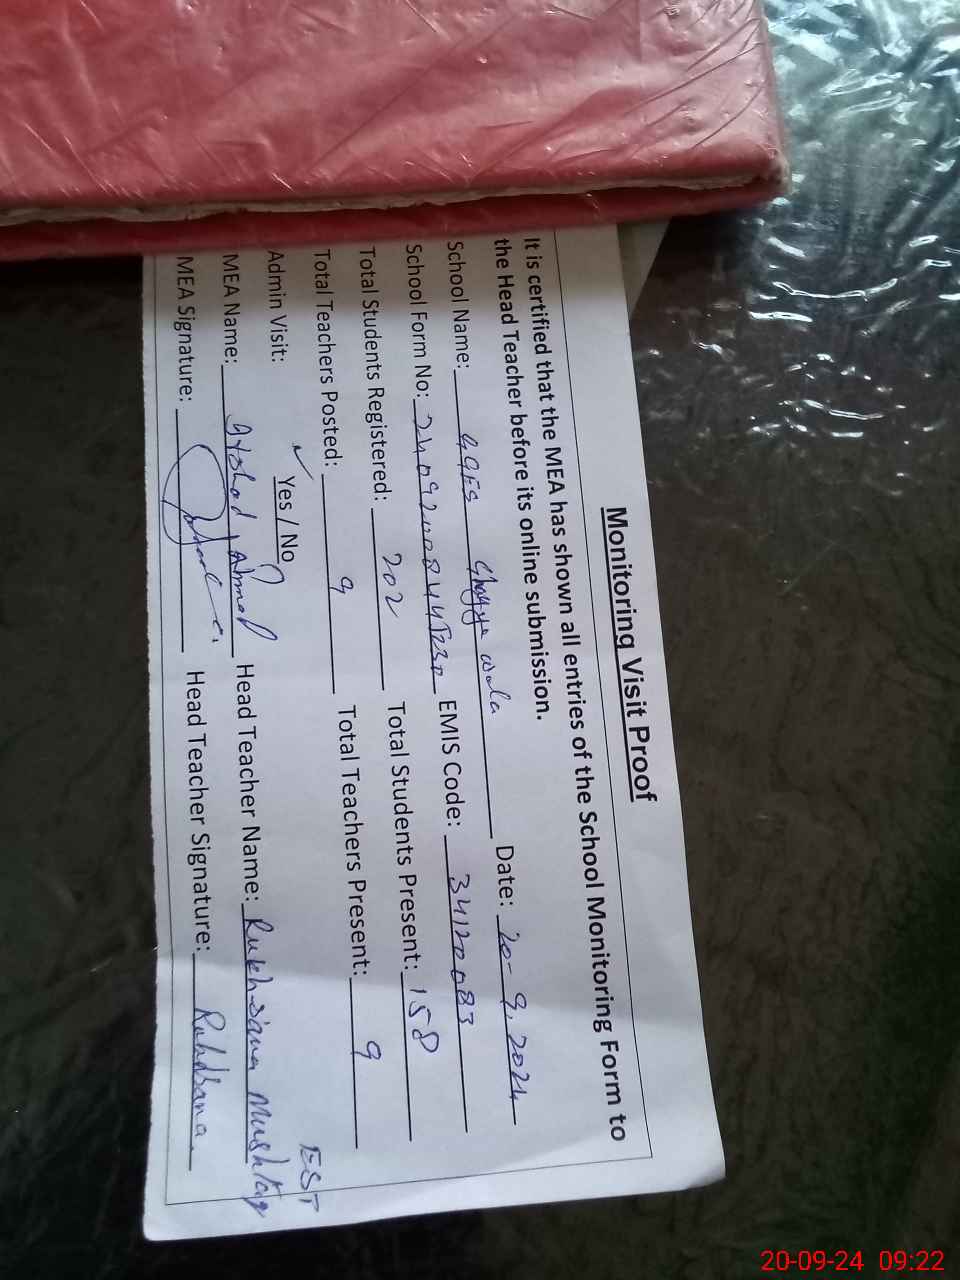 Monitoring Visit Proof
It is certified that the MEA has shown all entries of the School Monitoring Form to
the Head Teacher before its online submission.
School Name: GGES wala Date: 20-9.2024
School Form No: EMIS Code: 34120083
Total Students Registered: 202 Total Students Present: 158
Total Teachers Posted: 9 Total Teachers Present: 9
Admin Visit: Yes / No EST
MEA Name: Ahmad Head Teacher Name: Rukhsana Mushtaq
MEA Signature: Head Teacher Signature: Rukhsana
20-09-24 09:22